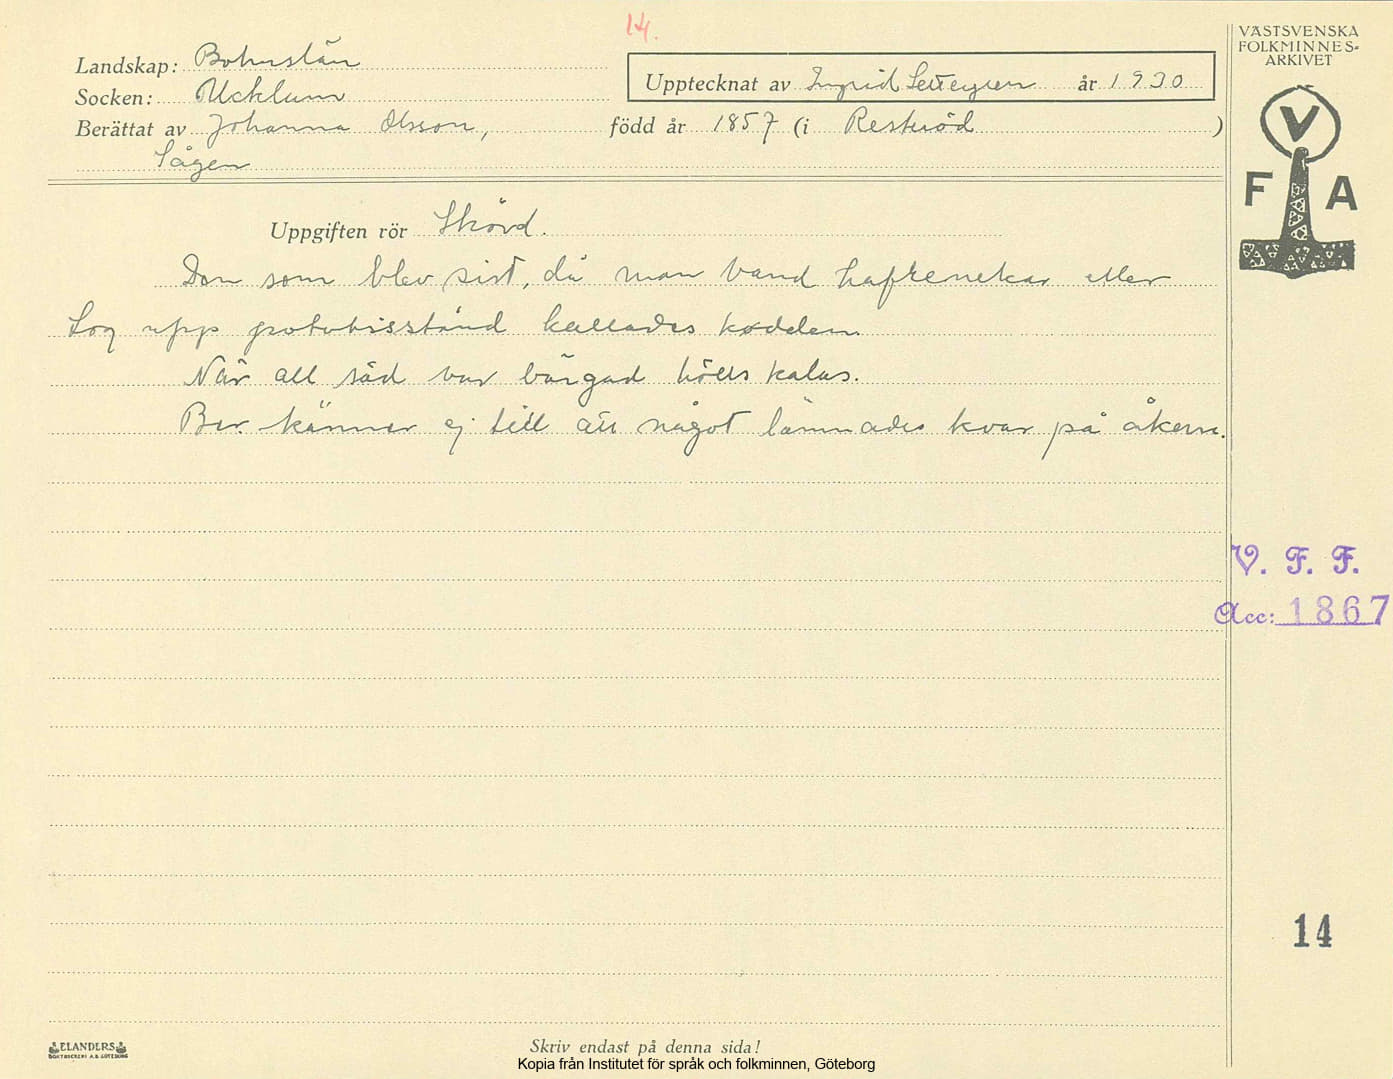 14.
VÄSTSVENSKA
FOLKMINNES-
ARKIVET
V
F A
Landskap: Bohuslän
Upptecknat av Ingrid år 1930
Socken: Ucklum
Berättat av Johanna Olsson, född år 1857 (iReströd )
Sågen
Uppgiften rör Skörd.
Den som blev sist, då man band hafrenekar eller
tog upp potatisstånd kallades kodden.
När all säd var bärgad hölls kalas.
Ber. känner ej till att något lämnades kvar på åkern.
V. F. F.
Acc: 1867
14
ELANDERS
BOKTRYCKERI A.B. GÖTEBORG
Skriv endast på denna sida!
Kopia från Institutet för språk och folkminnen, Göteborg